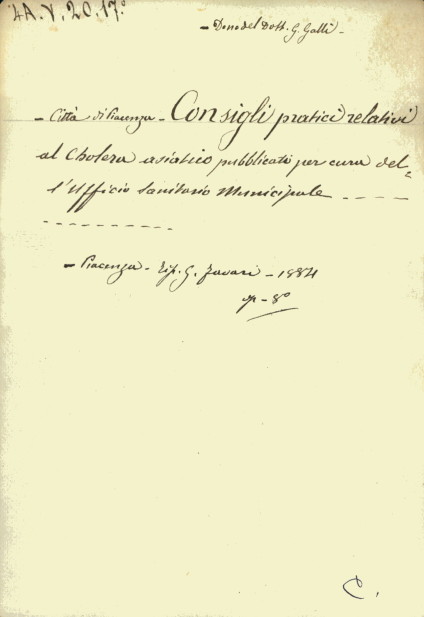 4A.V.20.17°
- Dono del Dott. G. Galli -
- Città di Piacenza - Consigli pratici relativi
al Cholera asiatico pubblicati per cura del=
l'Ufficio Sanitario Municipale - - - -
- - - - - - - - - -
- Piacenza - Tip. G. Tavari - 1884
op - 8°
C.